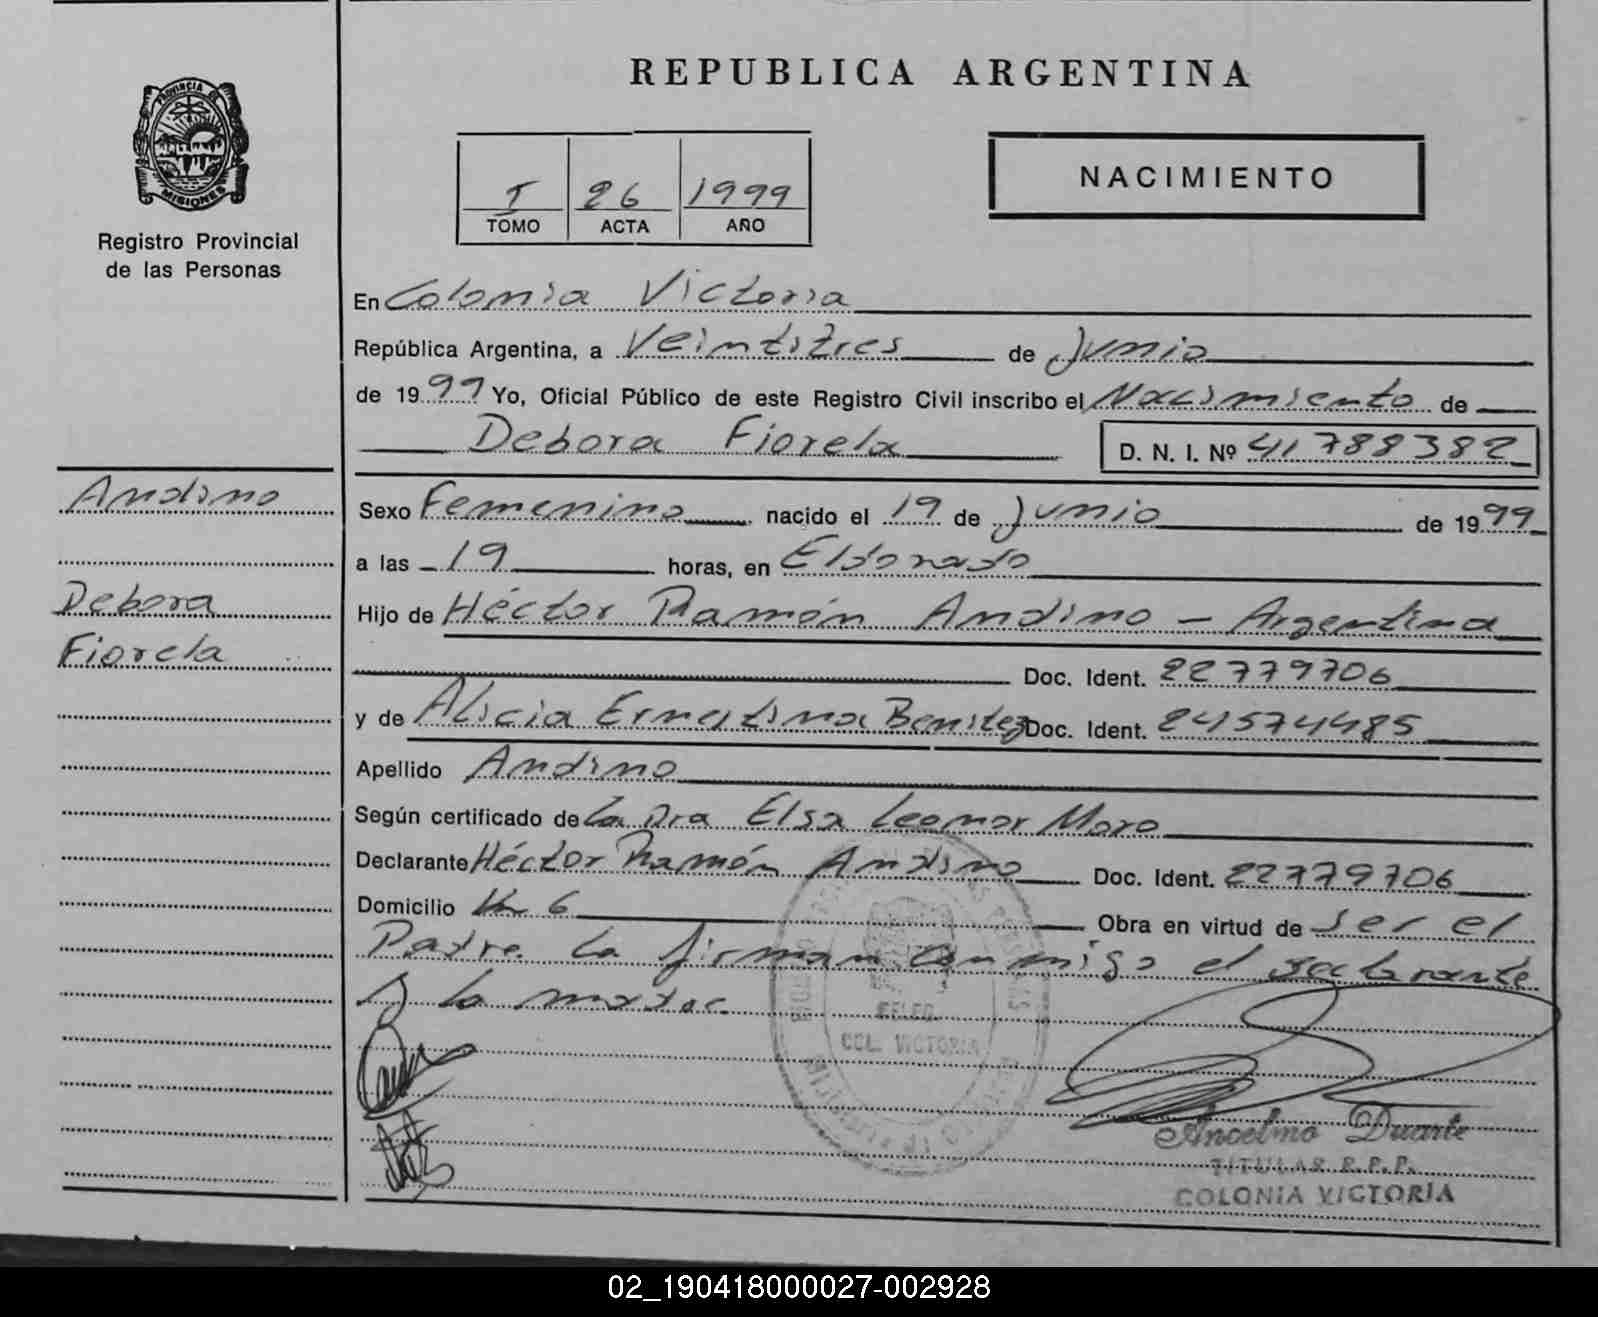 REPUBLICA ARGENTINA
PROVINCIA DE
MISIONES
Registro Provincial
de las Personas
I 26 1999
TOMO ACTA AÑO
NACIMIENTO
En Colonia Victoria
República Argentina, a Veintitres de Junio
de 1999 Yo, Oficial Público de este Registro Civil inscribo el Nacimiento de
Debora Fiorela D. N. I. Nº 41788382
Andino
Sexo Femenino nacido el 19 de Junio de 1999
a las 19 horas, en Eldorado
Debora
Hijo de Héctor Ramón Andino - Argentina
Fiorela
Doc. Ident. 22779706
y de Alicia Ernestina Benitez Doc. Ident. 24574485
Apellido Andino
Según certificado de La Dra Elsa Leonor Moro
Declarante Héctor Ramón Andino Doc. Ident. 22779706
Domicilio Km 6 Obra en virtud de ser el
Padre. La firman conmigo el declarante
y la madre.
DELEG.
COL. VICTORIA
Ancelmo Duarte
TITULAR R.P.P.
COLONIA VICTORIA
02_190418000027-002928